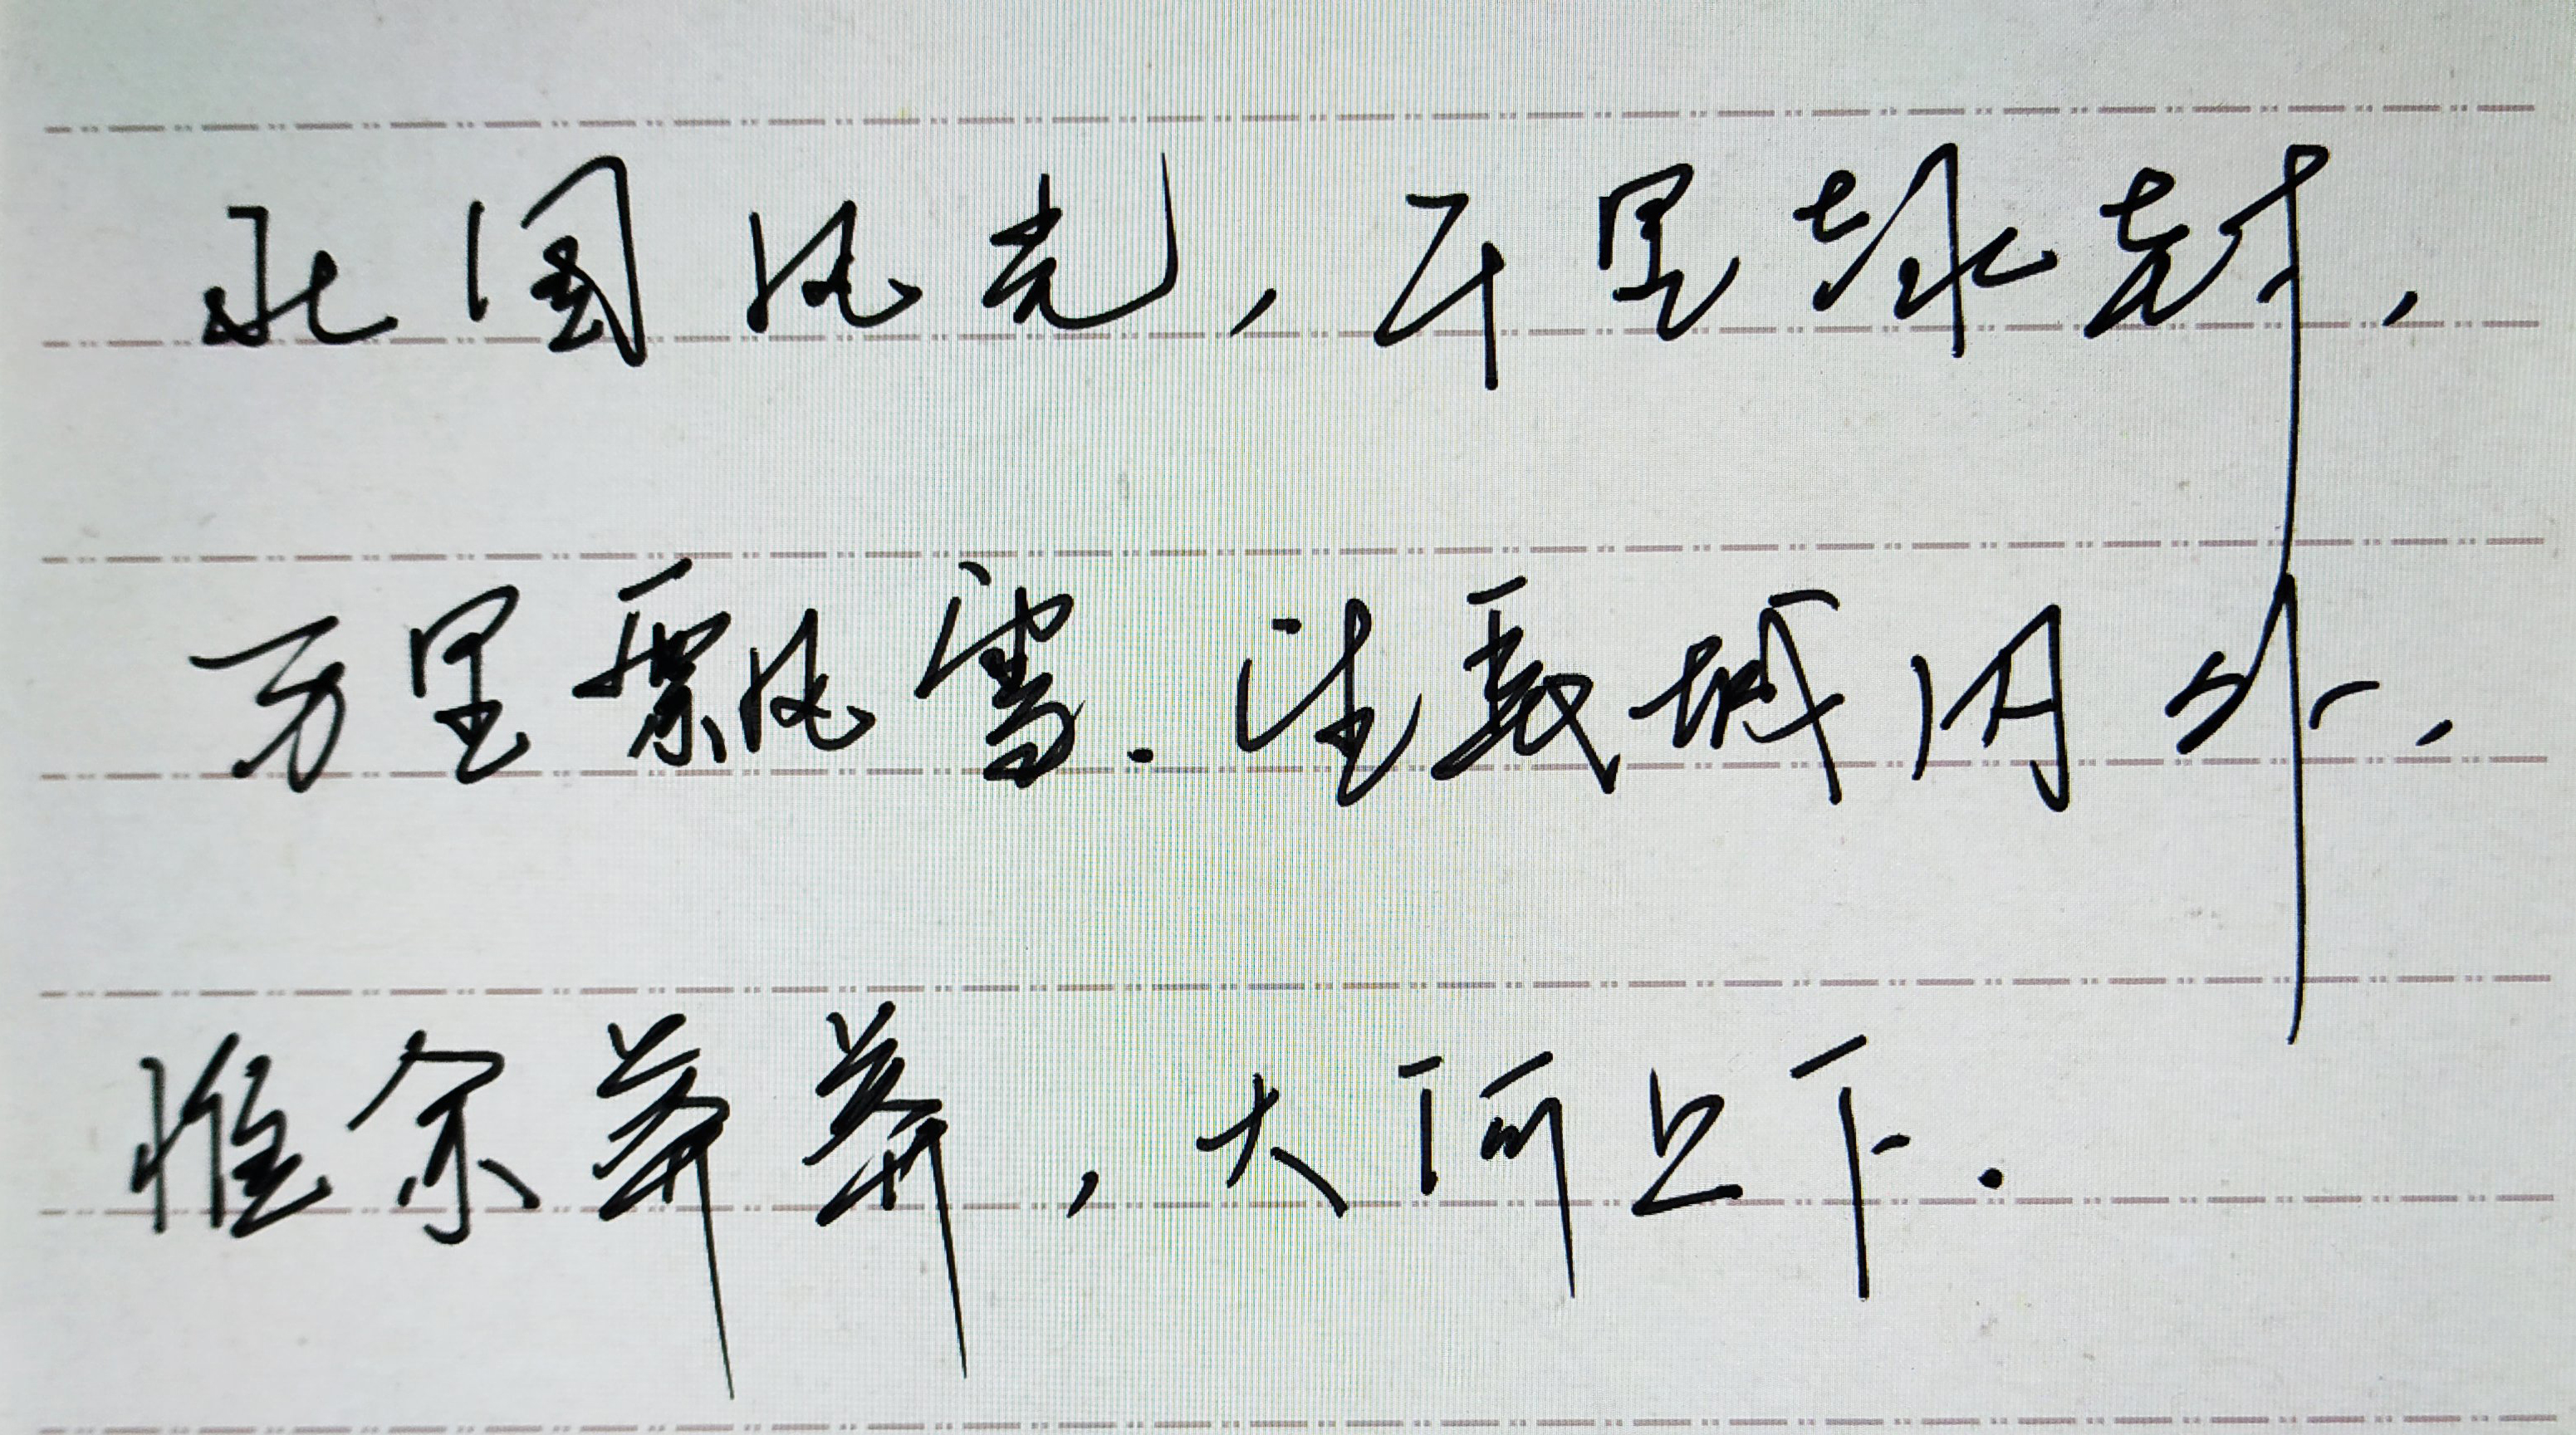 北国风光，千里冰封，
万里飘雪.望長城内外，
惟余莽莽，大河上下.